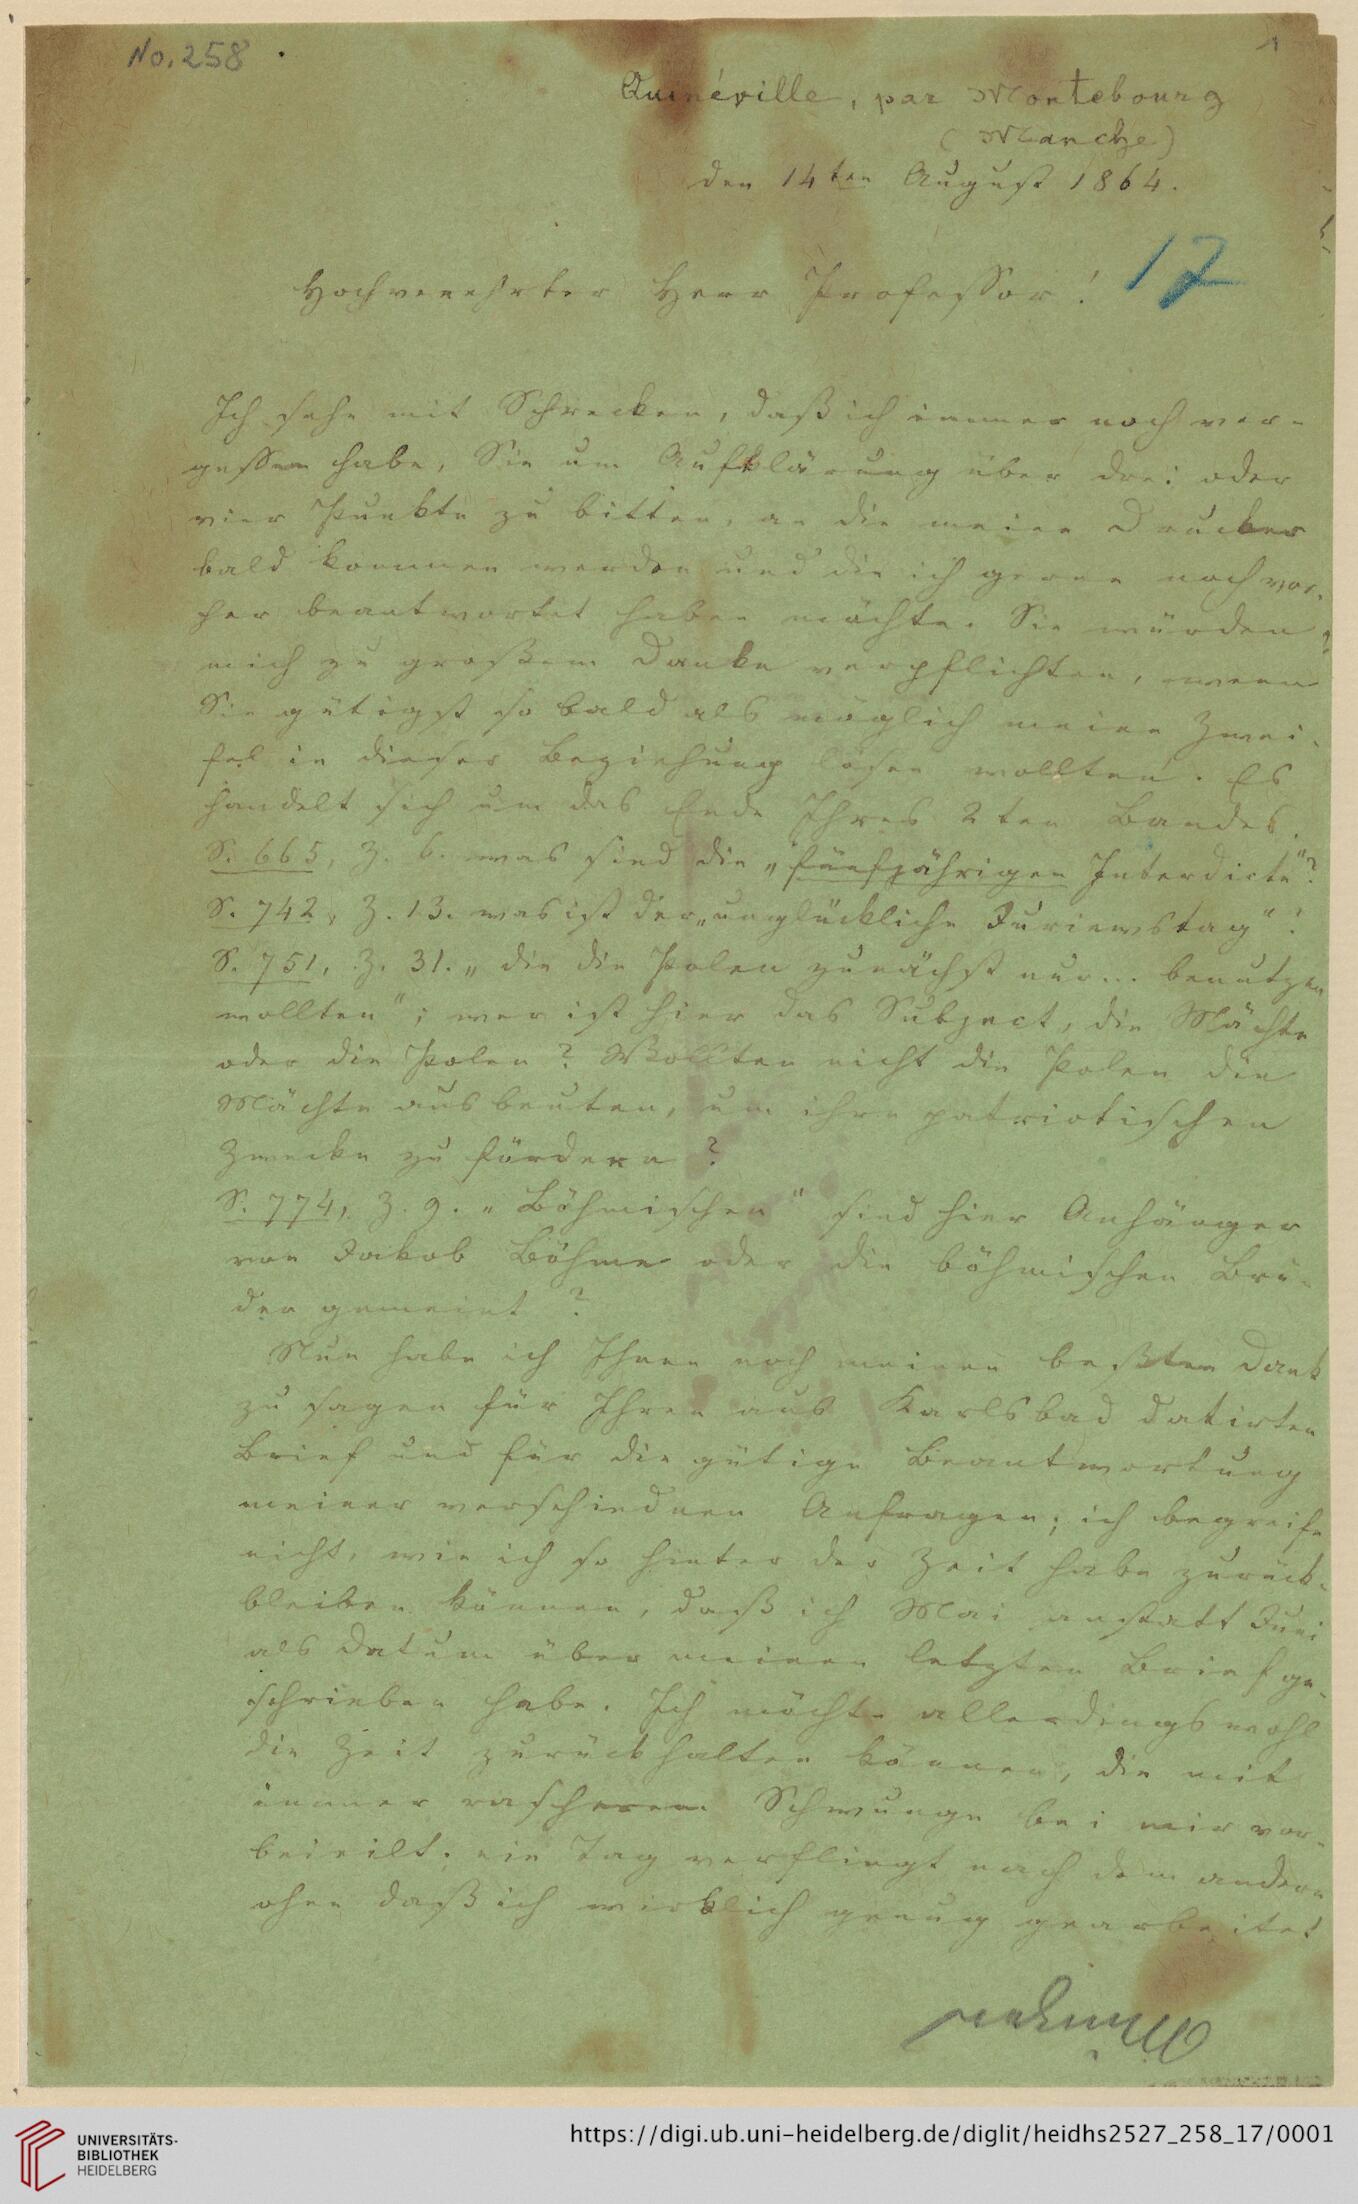 No. 258 .
1
Quinéville, par Montebourg
(Manche)
den 14ten August 1864.
17
Hochverehrter Herr Professor!
Ich sehe mit Schrecken, daß ich immer noch ver-
gessen habe, Sie um Aufklärung über drei oder
vier Punkte zu bitten, an die meine Drucker
bald kommen werden und die ich gerne noch vor-
her beantwortet haben möchte. Sie würden
mich zu großem Danke verpflichten, wenn
Sie gütigst so bald als möglich meine Zwei-
fel in dieser Beziehung lösen wollten. Es
handelt sich um das Ende Ihres 2ten Bandes.
S. 665, Z. 6. was sind die „fünfjährigen Interdicte"?
S. 742, Z. 13. was ist der „unglückliche Juriewstag"?
S. 751, Z. 31. „die die Polen zunächst nur... benutzen
wollten"; wer ist hier das Subject, die Mächte
oder die Polen? Wollten nicht die Polen die
Mächte ausbeuten, um ihre patriotischen
Zwecke zu fördern?
S. 774, Z. 9. „Böhmischen" sind hier Anhänger
von Jakob Böhme oder die böhmischen Brü-
der gemeint?
Nun habe ich Ihnen noch meinen beßten Dank
zu sagen für Ihren aus Karlsbad datirten
Brief und für die gütige Beantwortung
meiner verschiednen Anfragen; ich begreife
nicht, wie ich so hinter der Zeit habe zurück-
bleiben können, daß ich Mai anstatt Juni
als Datum über meinen letzten Brief ge-
schrieben habe. Ich möchte allerdings wohl
die Zeit zurückhalten können, die mit
immer rascherem Schwunge bei mir vor-
beieilt; ein Tag verfliegt nach dem andern
ohne daß ich wirklich genug gearbeitet
UNIVERSITÄTS-
BIBLIOTHEK
HEIDELBERG
https://digi.ub.uni-heidelberg.de/diglit/heidhs2527_258_17/0001